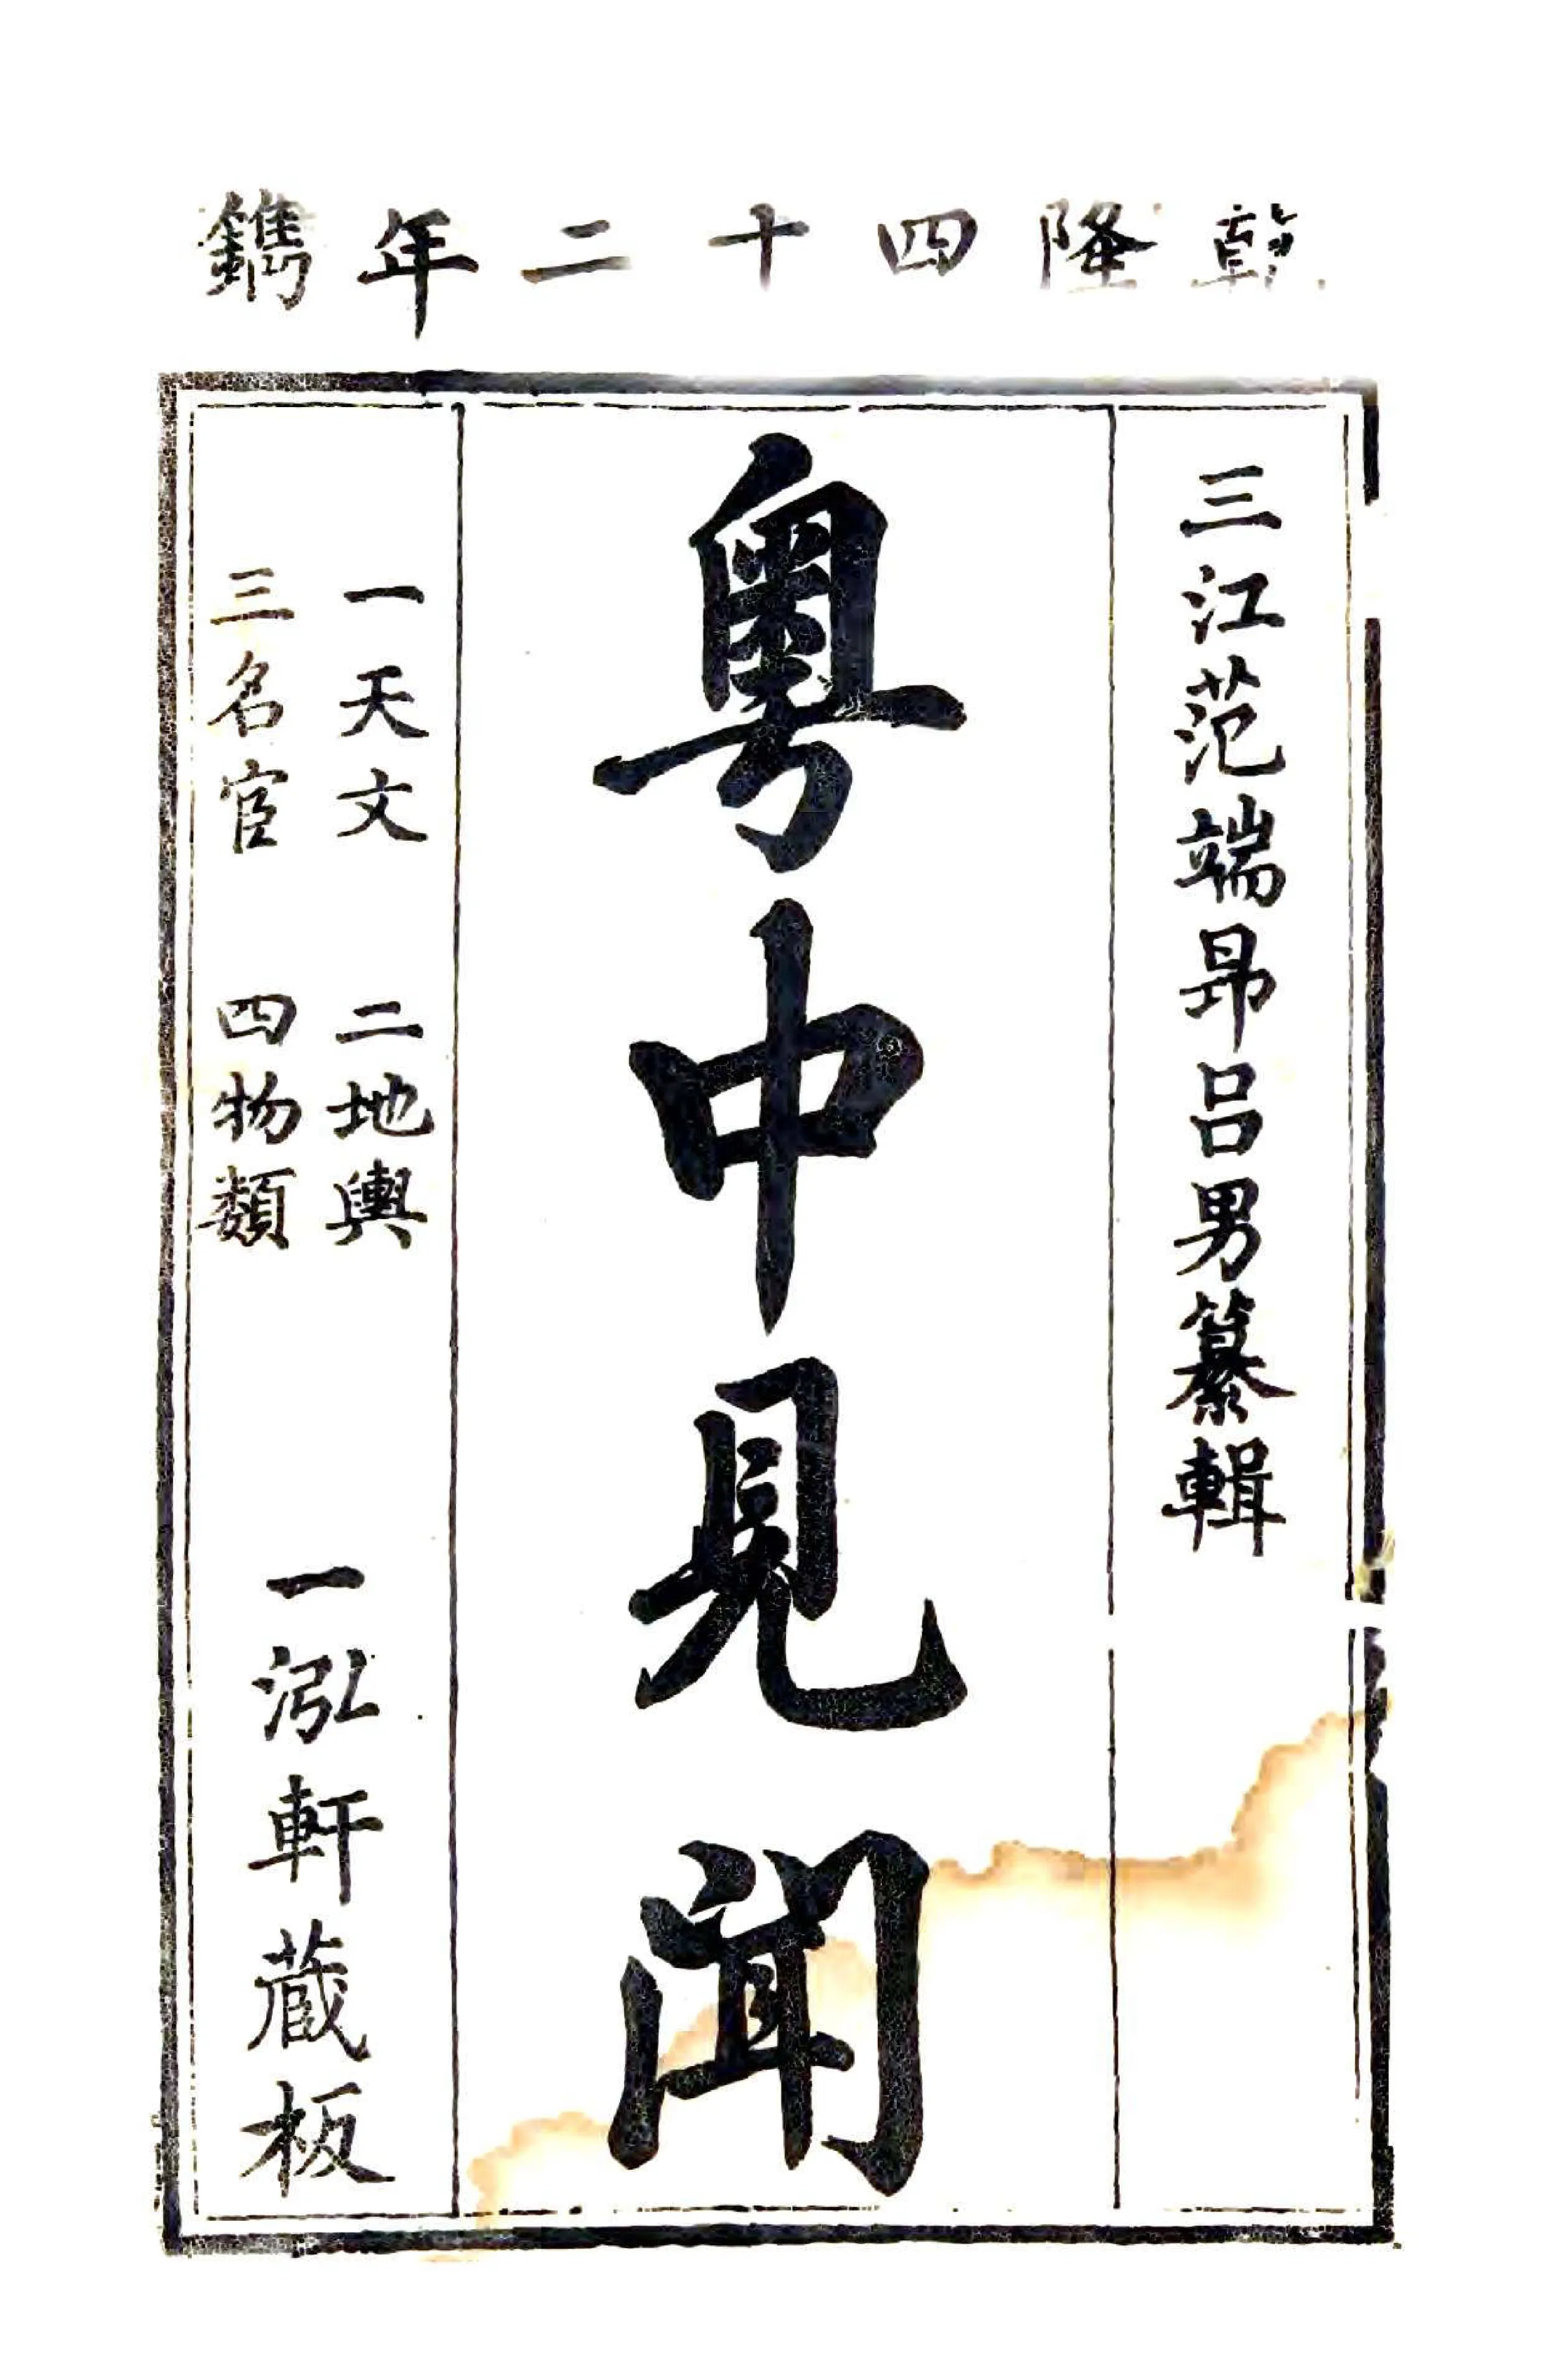 乾隆四十二年鐫
三江范端昻吕男纂輯
粤中見聞
一天文 二地輿
三名宦 四物類
一泓軒藏板